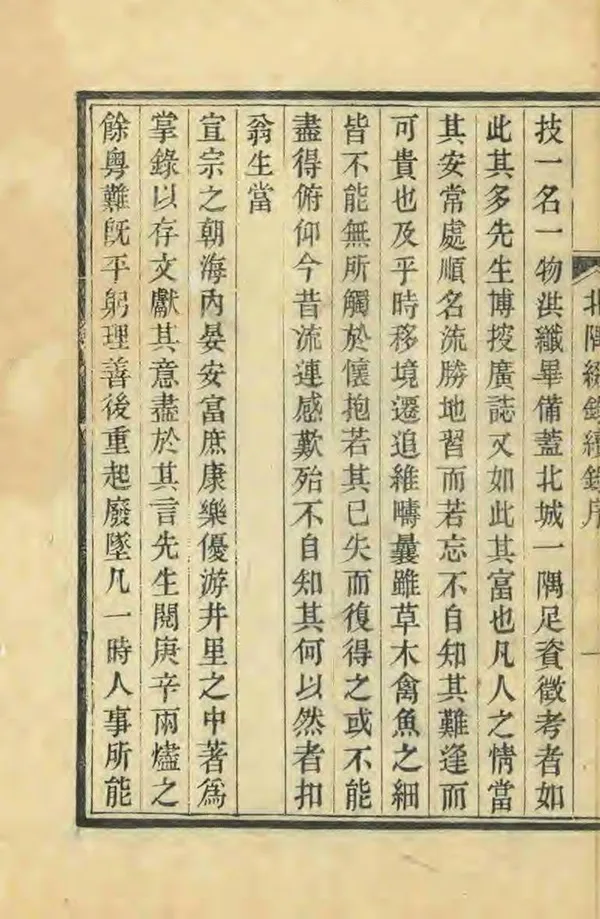 北隅綴錄續錄序
一
技一名一物洪纖畢備蓋北城一隅足資徵考者如
此其多先生博搜廣誌又如此其富也凡人之情當
其安常處順名流勝地習而若忘不自知其難逢而
可貴也及乎時移境遷追維疇曩雖草木禽魚之細
皆不能無所觸於懷抱若其已失而復得之或不能
盡得俯仰今昔流連感歎殆不自知其何以然者扣
翁生當
宣宗之朝海內晏安富庶康樂優游井里之中著爲
掌錄以存文獻其意盡於其言先生閱庚辛兩燼之
餘粵難旣平躬理善後重起廢墜凡一時人事所能